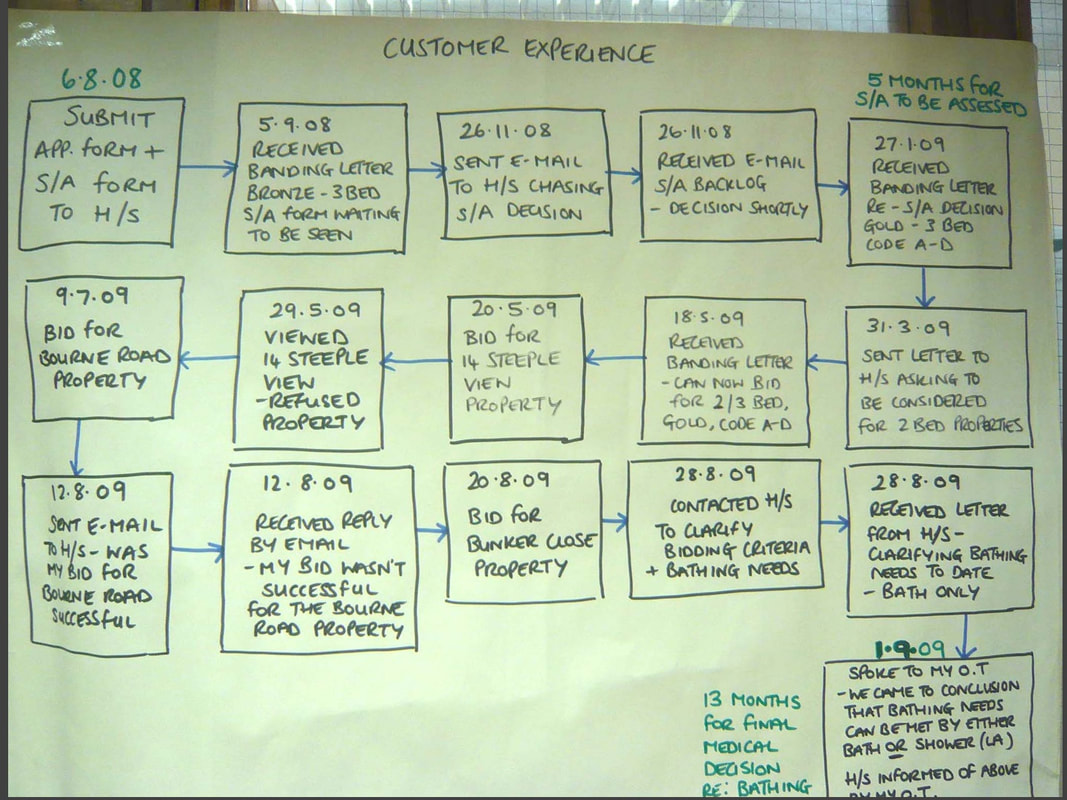 CUSTOMER EXPERIENCE
6.8.08
SUBMIT
APP. FORM +
S/A FORM
TO H/S
5.9.08
RECEIVED
BANDING LETTER
BRONZE - 3 BED
S/A FORM WAITING
TO BE SEEN
26.11.08
SENT E-MAIL
TO H/S CHASING
S/A DECISION
26.11.08
RECEIVED E-MAIL
S/A BACKLOG
- DECISION SHORTLY
5 MONTHS FOR
S/A TO BE ASSESSED
27.1.09
RECEIVED
BANDING LETTER
RE - S/A DECISION
GOLD - 3 BED
CODE A-D
31.3.09
SENT LETTER TO
H/S ASKING TO
BE CONSIDERED
FOR 2 BED PROPERTIES
18.5.09
RECEIVED
BANDING LETTER
- CAN NOW BID
FOR 2/3 BED,
GOLD, CODE A-D
20.5.09
BID FOR
14 STEEPLE
VIEW
PROPERTY
29.5.09
VIEWED
14 STEEPLE
VIEW
- REFUSED
PROPERTY
9.7.09
BID FOR
BOURNE ROAD
PROPERTY
12.8.09
SENT E-MAIL
TO H/S - WAS
MY BID FOR
BOURNE ROAD
SUCCESSFUL
12.8.09
RECEIVED REPLY
BY EMAIL
- MY BID WASN'T
SUCCESSFUL
FOR THE BOURNE
ROAD PROPERTY
20.8.09
BID FOR
BUNKER CLOSE
PROPERTY
28.8.09
CONTACTED H/S
TO CLARIFY
BIDDING CRITERIA
+ BATHING NEEDS
28.8.09
RECEIVED LETTER
FROM H/S -
CLARIFYING BATHING
NEEDS TO DATE
- BATH ONLY
1.9.09
SPOKE TO MY O.T
- WE CAME TO CONCLUSION
THAT BATHING NEEDS
CAN BE MET BY EITHER
BATH OR SHOWER (LA)
H/S INFORMED OF ABOVE
BY MY O.T.
13 MONTHS
FOR FINAL
MEDICAL
DECISION
RE: BATHING